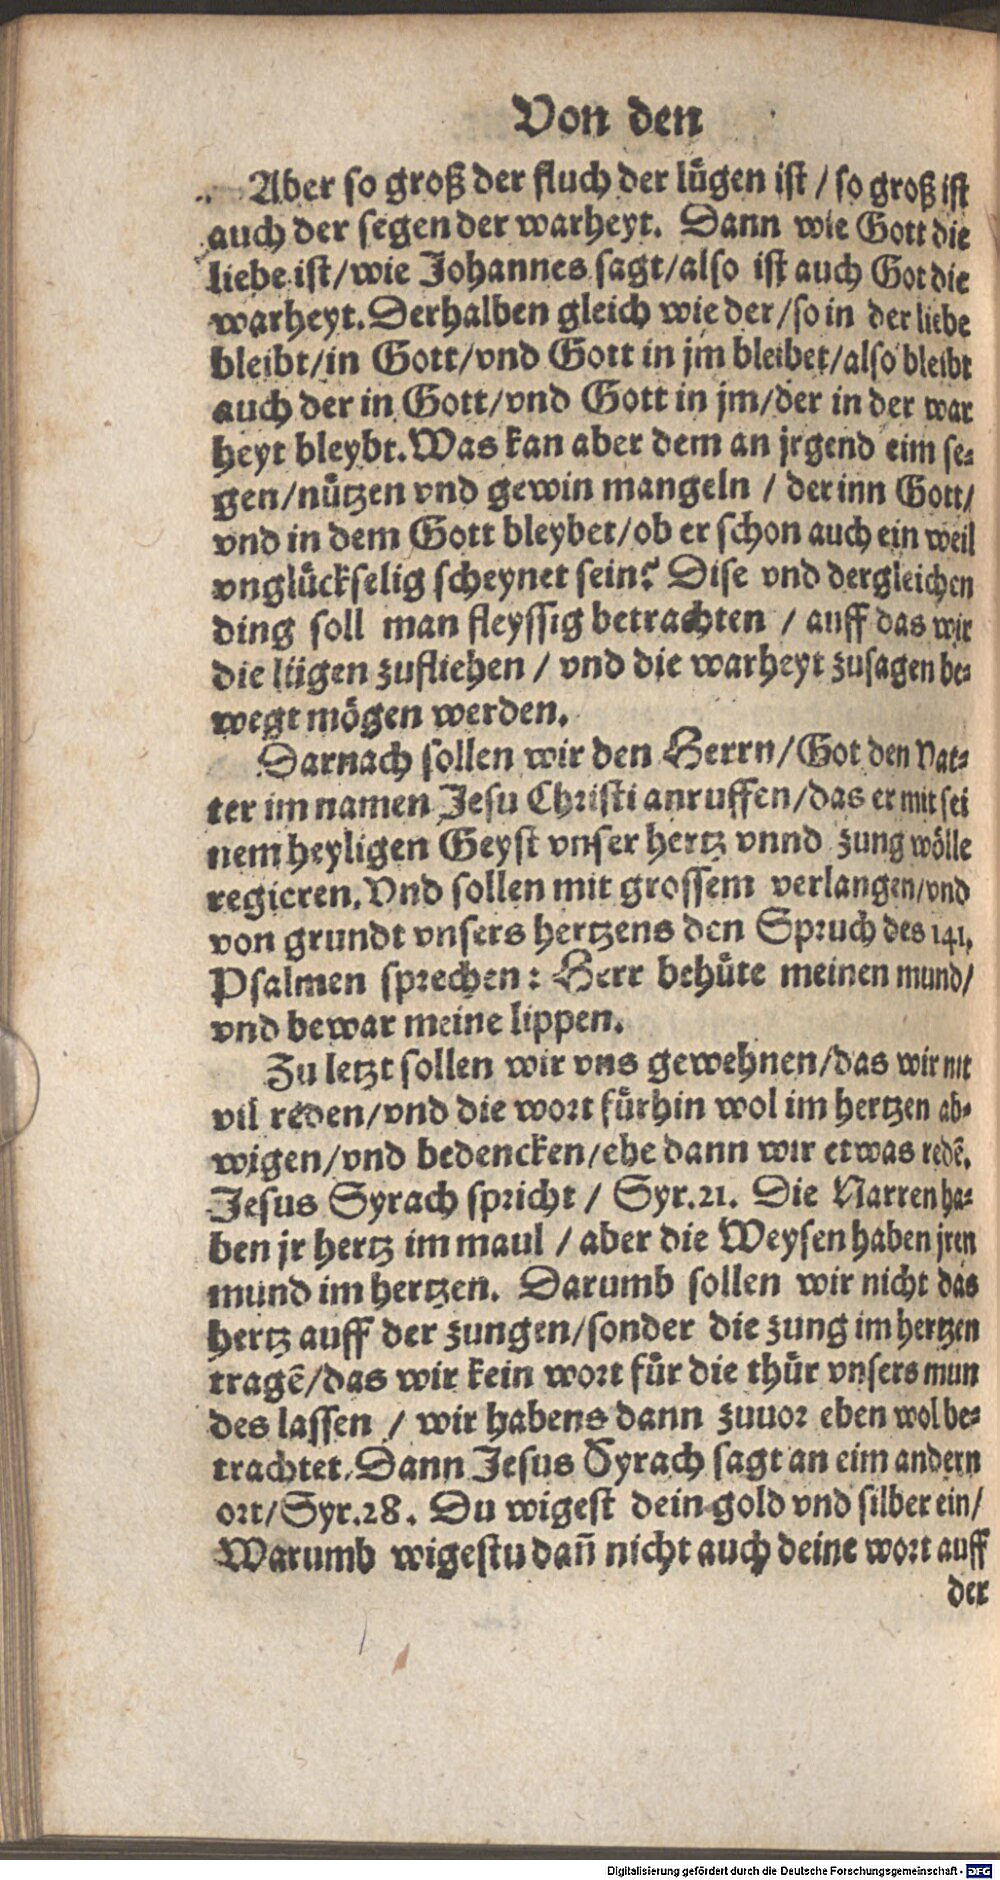 Von den
Aber so groß der fluch der lügen ist / so groß ist
auch der segen der warheyt. Dann wie Gott die
liebe ist/wie Johannes sagt/also ist auch Got die
warheyt. Derhalben gleich wie der/so in der liebe
bleibt/in Gott/vnd Gott in jm bleibet/also bleibt
auch der in Gott/vnd Gott in jm/der in der war
heyt bleybt. Was kan aber dem an jrgend eim se-
gen/nützen vnd gewin mangeln / der inn Gott/
vnd in dem Gott bleybet/ob er schon auch ein weil
vnglückselig scheynet sein? Dise vnd dergleichen
ding soll man fleyssig betrachten / auff das wir
die lügen zufliehen / vnd die warheyt zusagen be-
wegt mögen werden.
Darnach sollen wir den Herrn/Got den Vat-
ter im namen Jesu Christi anruffen/das er mit sei
nem heyligen Geyst vnser hertz vnnd zung wölle
regieren. Vnd sollen mit grossem verlangen/vnd
von grundt vnsers hertzens den Spruch des 141.
Psalmen sprechen: Herr behüte meinen mund/
vnd bewar meine lippen.
Zu letzt sollen wir vns gewehnen/das wir nit
vil reden/vnd die wort fürhin wol im hertzen ab-
wigen/vnd bedencken/ehe dann wir etwas redẽ.
Jesus Syrach spricht / Syr.21. Die Narren ha-
ben jr hertz im maul / aber die Weysen haben jren
mund im hertzen. Darumb sollen wir nicht das
hertz auff der zungen/sonder die zung im hertzen
tragẽ/das wir kein wort für die thür vnsers mun
des lassen / wir habens dann zuuor eben wol be-
trachtet. Dann Jesus Syrach sagt an eim andern
ort/Syr.28. Du wigest dein gold vnd silber ein/
Warumb wigestu dañ nicht auch deine wort auff
der
Digitalisierung gefördert durch die Deutsche Forschungsgemeinschaft - DFG